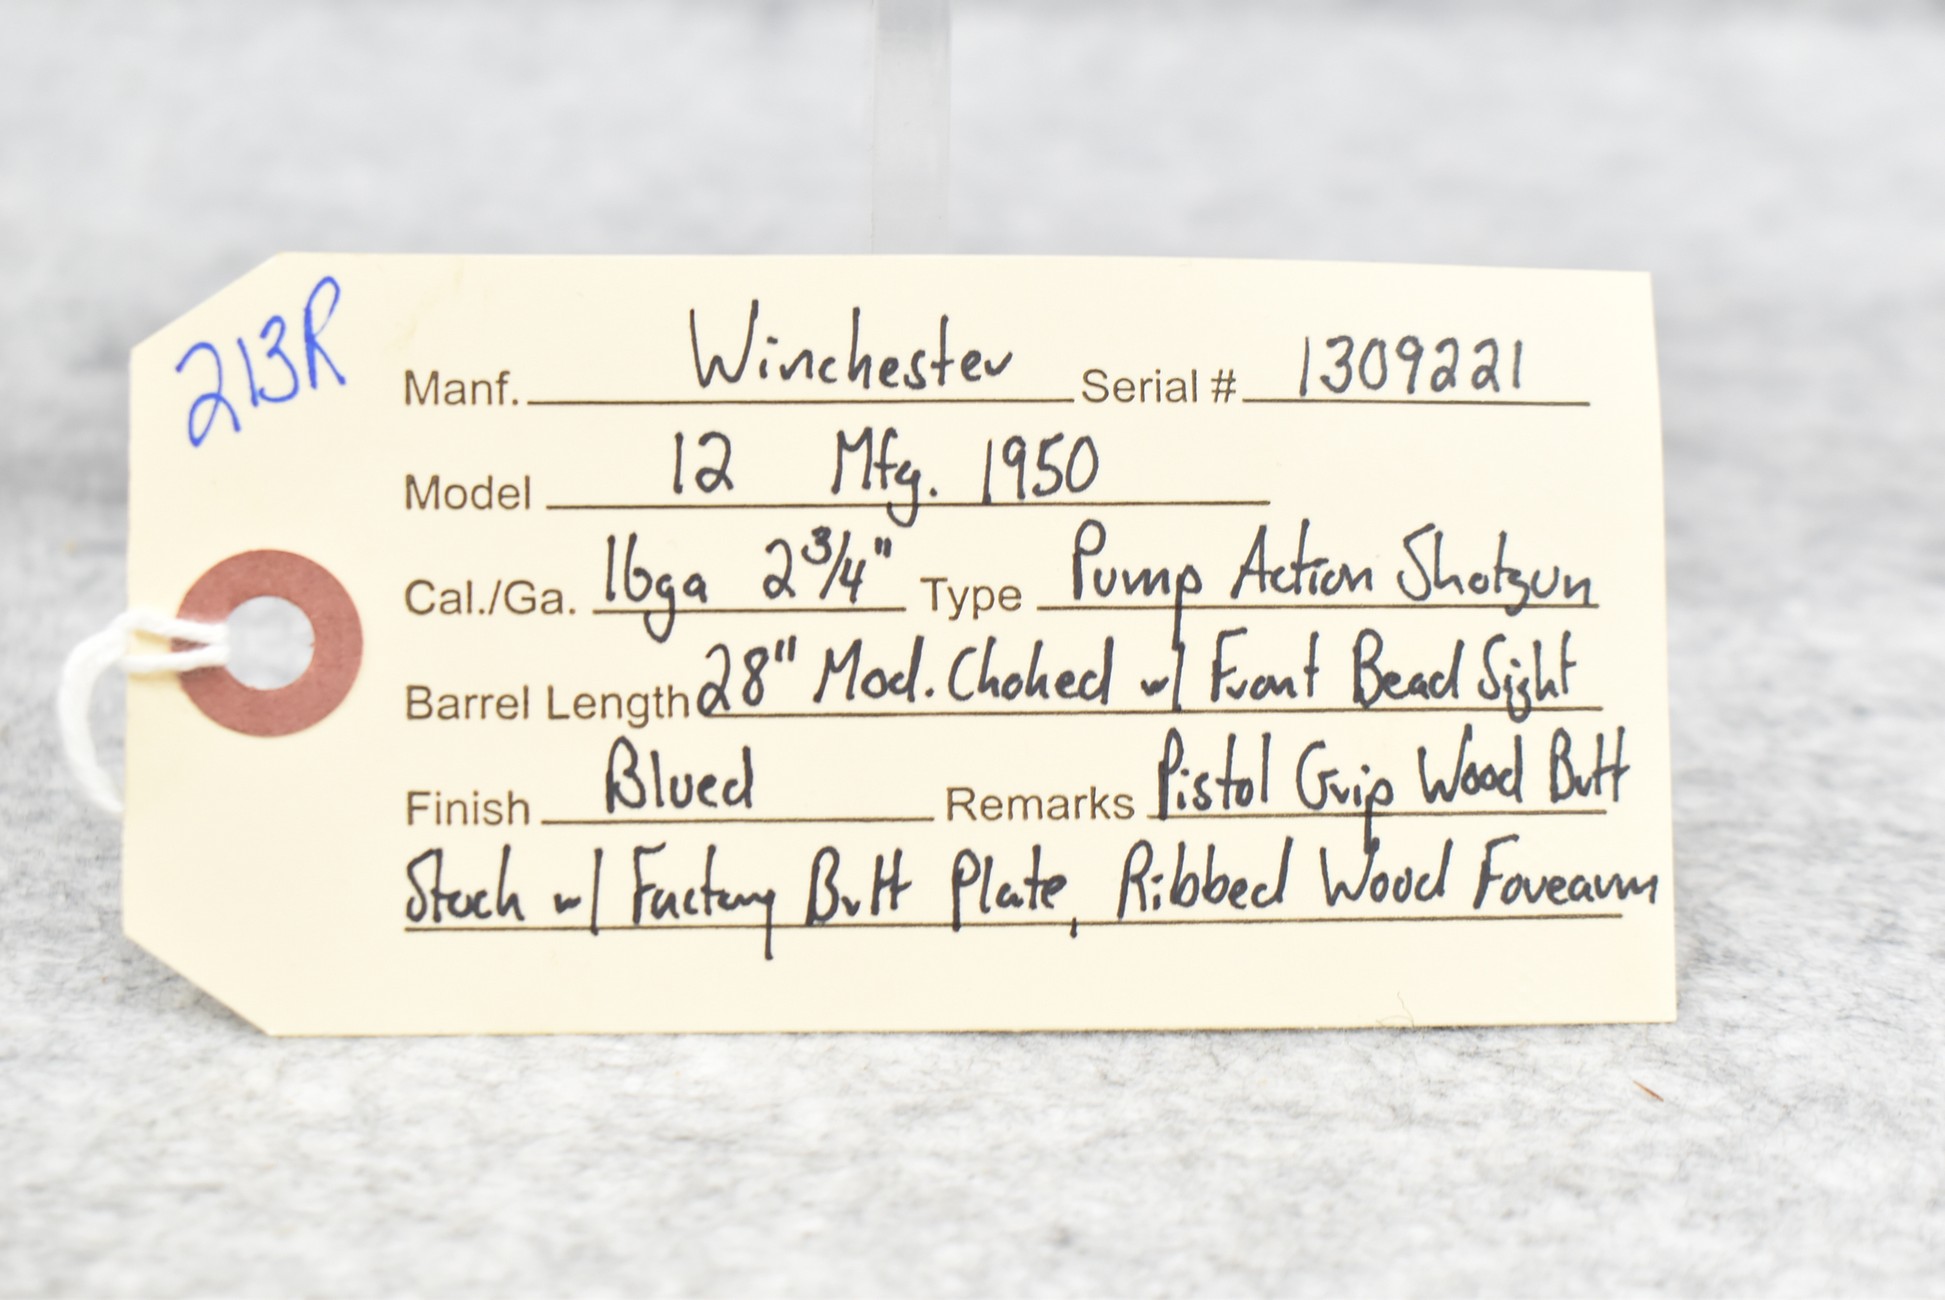 213R
Manf. Winchester Serial # 1309221
Model 12 Mfg. 1950
Cal./Ga. 16ga 2 3/4" Type Pump Action Shotgun
Barrel Length 28" Mod. Choked w/ Front Bead Sight
Finish Blued Remarks Pistol Grip Wood Butt
Stock w/ Factory Butt Plate, Ribbed Wood Forearm